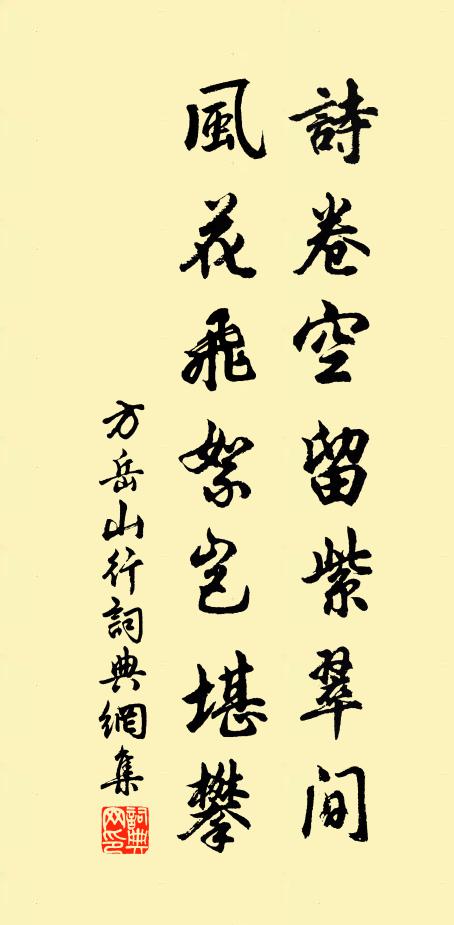 詩卷空留紫翠间
風花飛絮岂堪攀
方岳山行詞典網集
詞典
网印